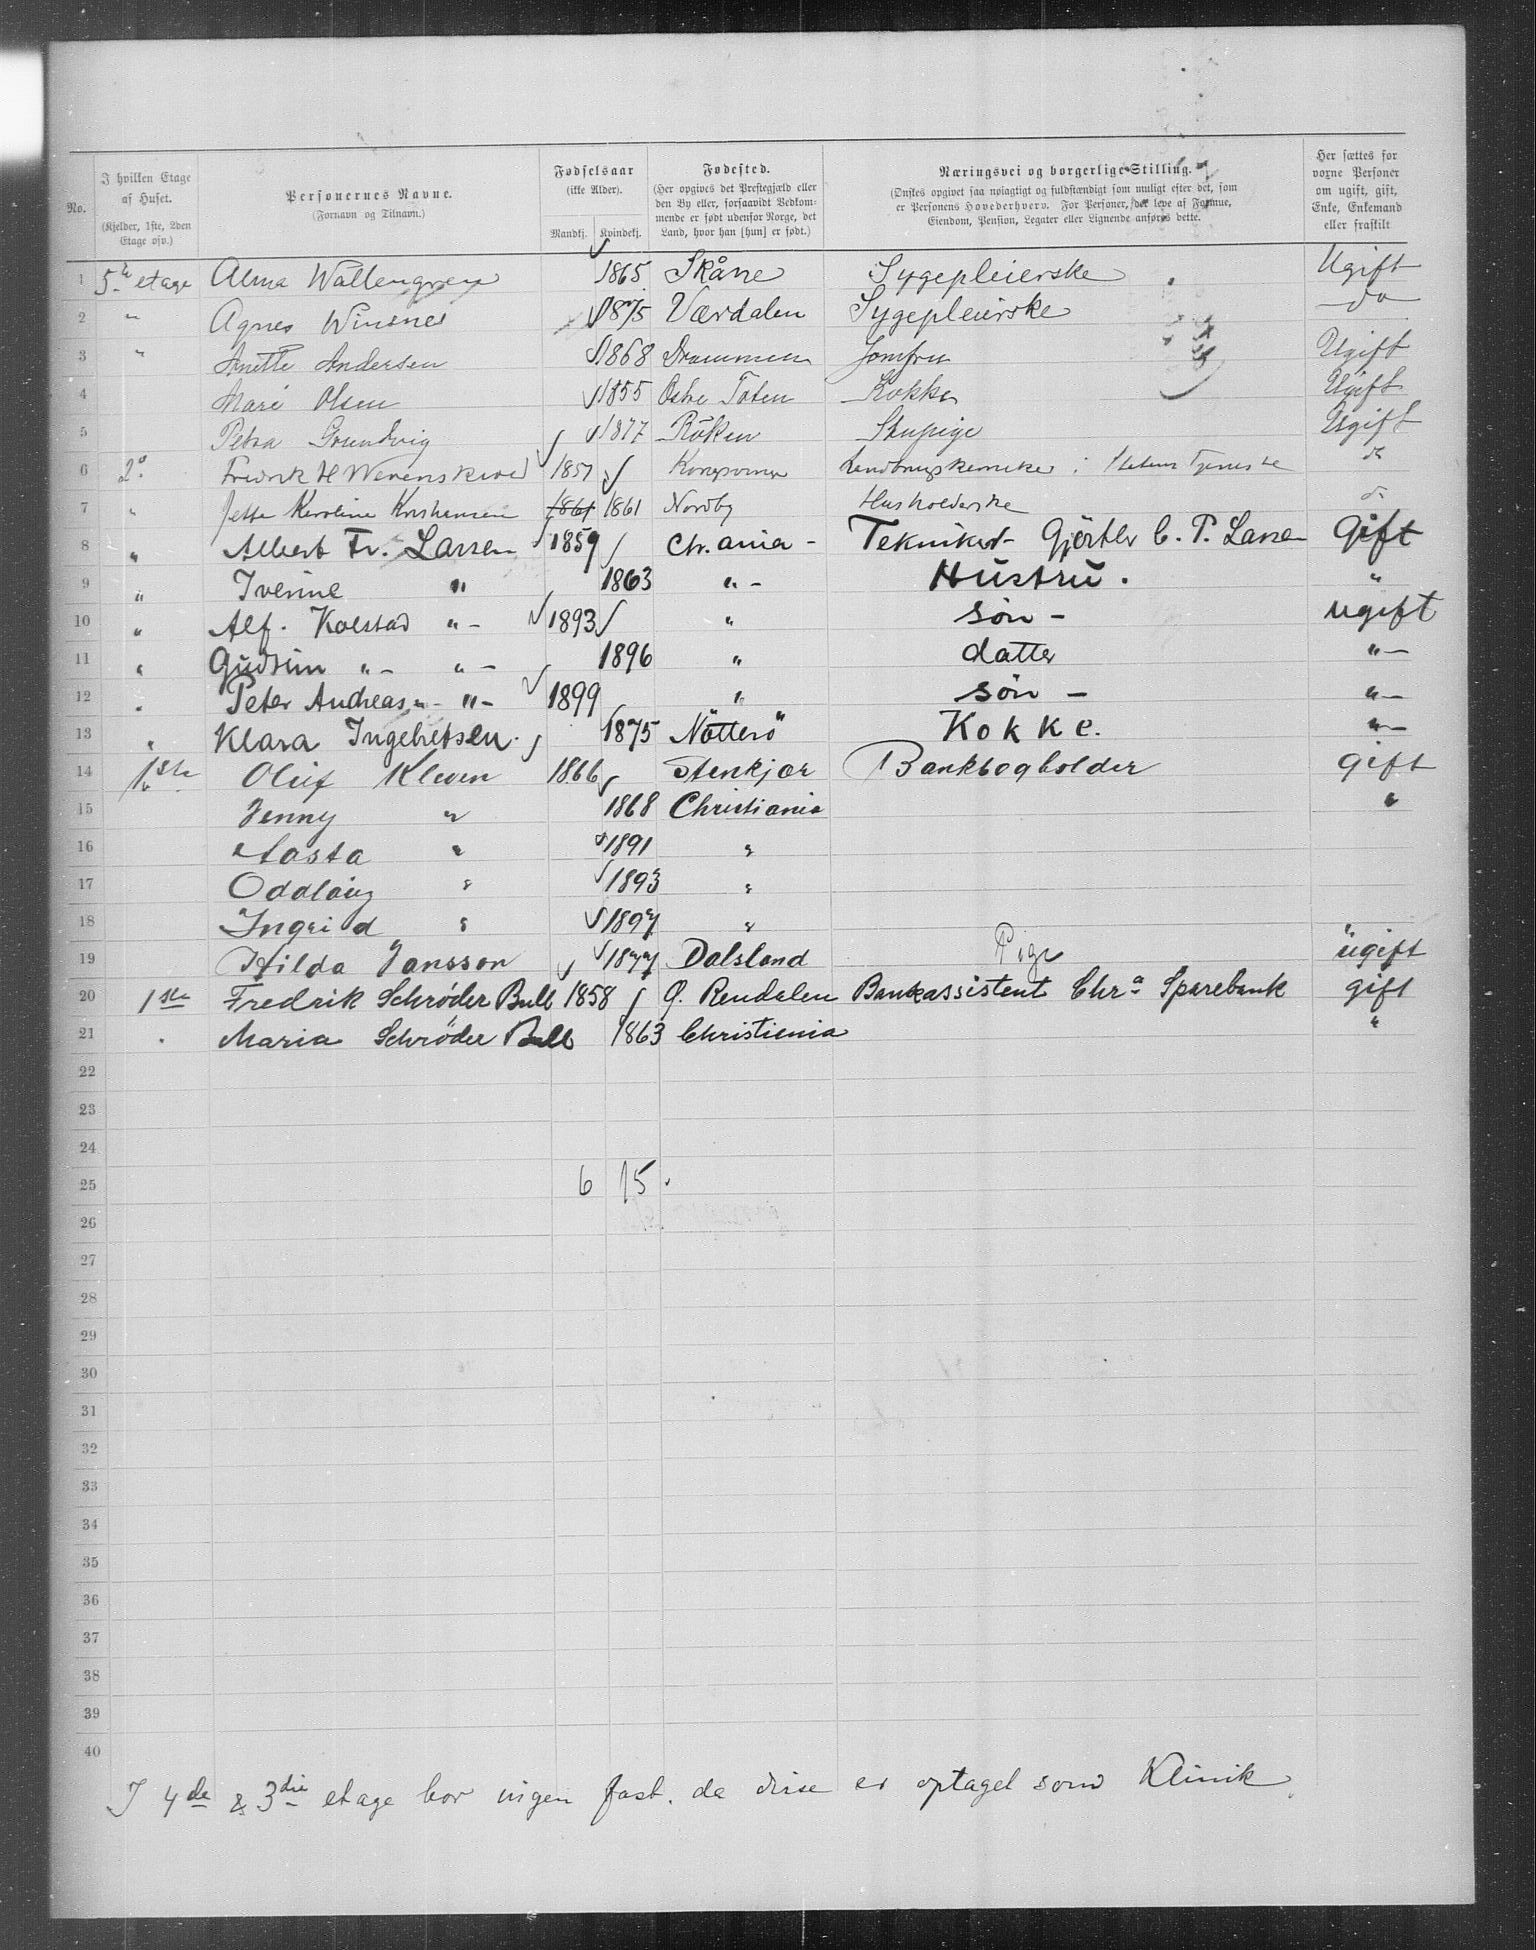 No.
I hvilken Etage af Huset. (Kjelder, 1ste, 2den Etage osv.)
Personernes Navne. (Fornavn og Tilnavn.)
Fødselsaar (ikke Alder). Mandkj. Kvindekj.
Fødested. (Her opgives det Præstegjæld eller den By eller, forsaavidt Vedkommende er født udenfor Norge, det Land, hvor han [hun] er født.)
Næringsvei og borgerlige Stilling. (Ønskes opgivet saa nøiagtigt og fuldstændigt som muligt efter det, som er Personens Hovederhverv. For Personer, der leve af Formue, Eiendom, Pension, Legater eller Lignende anføres dette.
Her sættes for voxne Personer om ugift, gift, Enke, Enkemand eller fraskilt
1 5te etage Alma Wallengren 1865 Skåne Sygepleierske Ugift
2 " Agnes Winsnes 1875 Værdalen Sygepleierske do
3 " Anette Andersen 1868 Drammen Jomfru Ugift
4 Mari Olsen 1855 Østre Toten Kokke Ugift
5 Petra Grundvig 1877 Röken Stupige Ugift
6 2d Fredrik H Werenskiold 1857 Kongsvinger Landbrugskemiker i Statens Tjeneste do
7 " Jette Karoline Kristiansen 1861 1861 Nordby Husholderske do
8 " Albert Fr. Larsen 1859 Chr.ania - Tekniker - Gjørtler C. P. Larsen Gift
9 " Iverine " 1863 " - Hustru. "
10 " Alf. Kolstad " - 1893 " søn - ugift
11 " Gudrun " - " - 1896 " datter " -
12 " Peter Andreas " - " - 1899 " søn - " -
13 " Klara Ingebretsen. 1875 Nötterö Kokke. " -
14 1ste Oluf Kleven 1866 Stenkjær Bankbogholder gift
15 " Jenny " 1868 Christiania "
16 Aasta " 1891 "
17 Oddlaug " 1893 "
18 Ingrid " 1897 "
19 Hilda Jansson 1877 Dalsland Pige ugift
20 1ste Fredrik Schrøder Bull 1858 Ø. Rendalen Bankassistent Chra Sparebank gift
21 " Maria Schrøder Bull 1863 Christiania "
22
23
24
25 6 15.
26
27
28
29
30
31
32
33
34
35
36
37
38
39
40
I 4de & 3die etage bor ingen fast, da disse er optaget som Klinik.